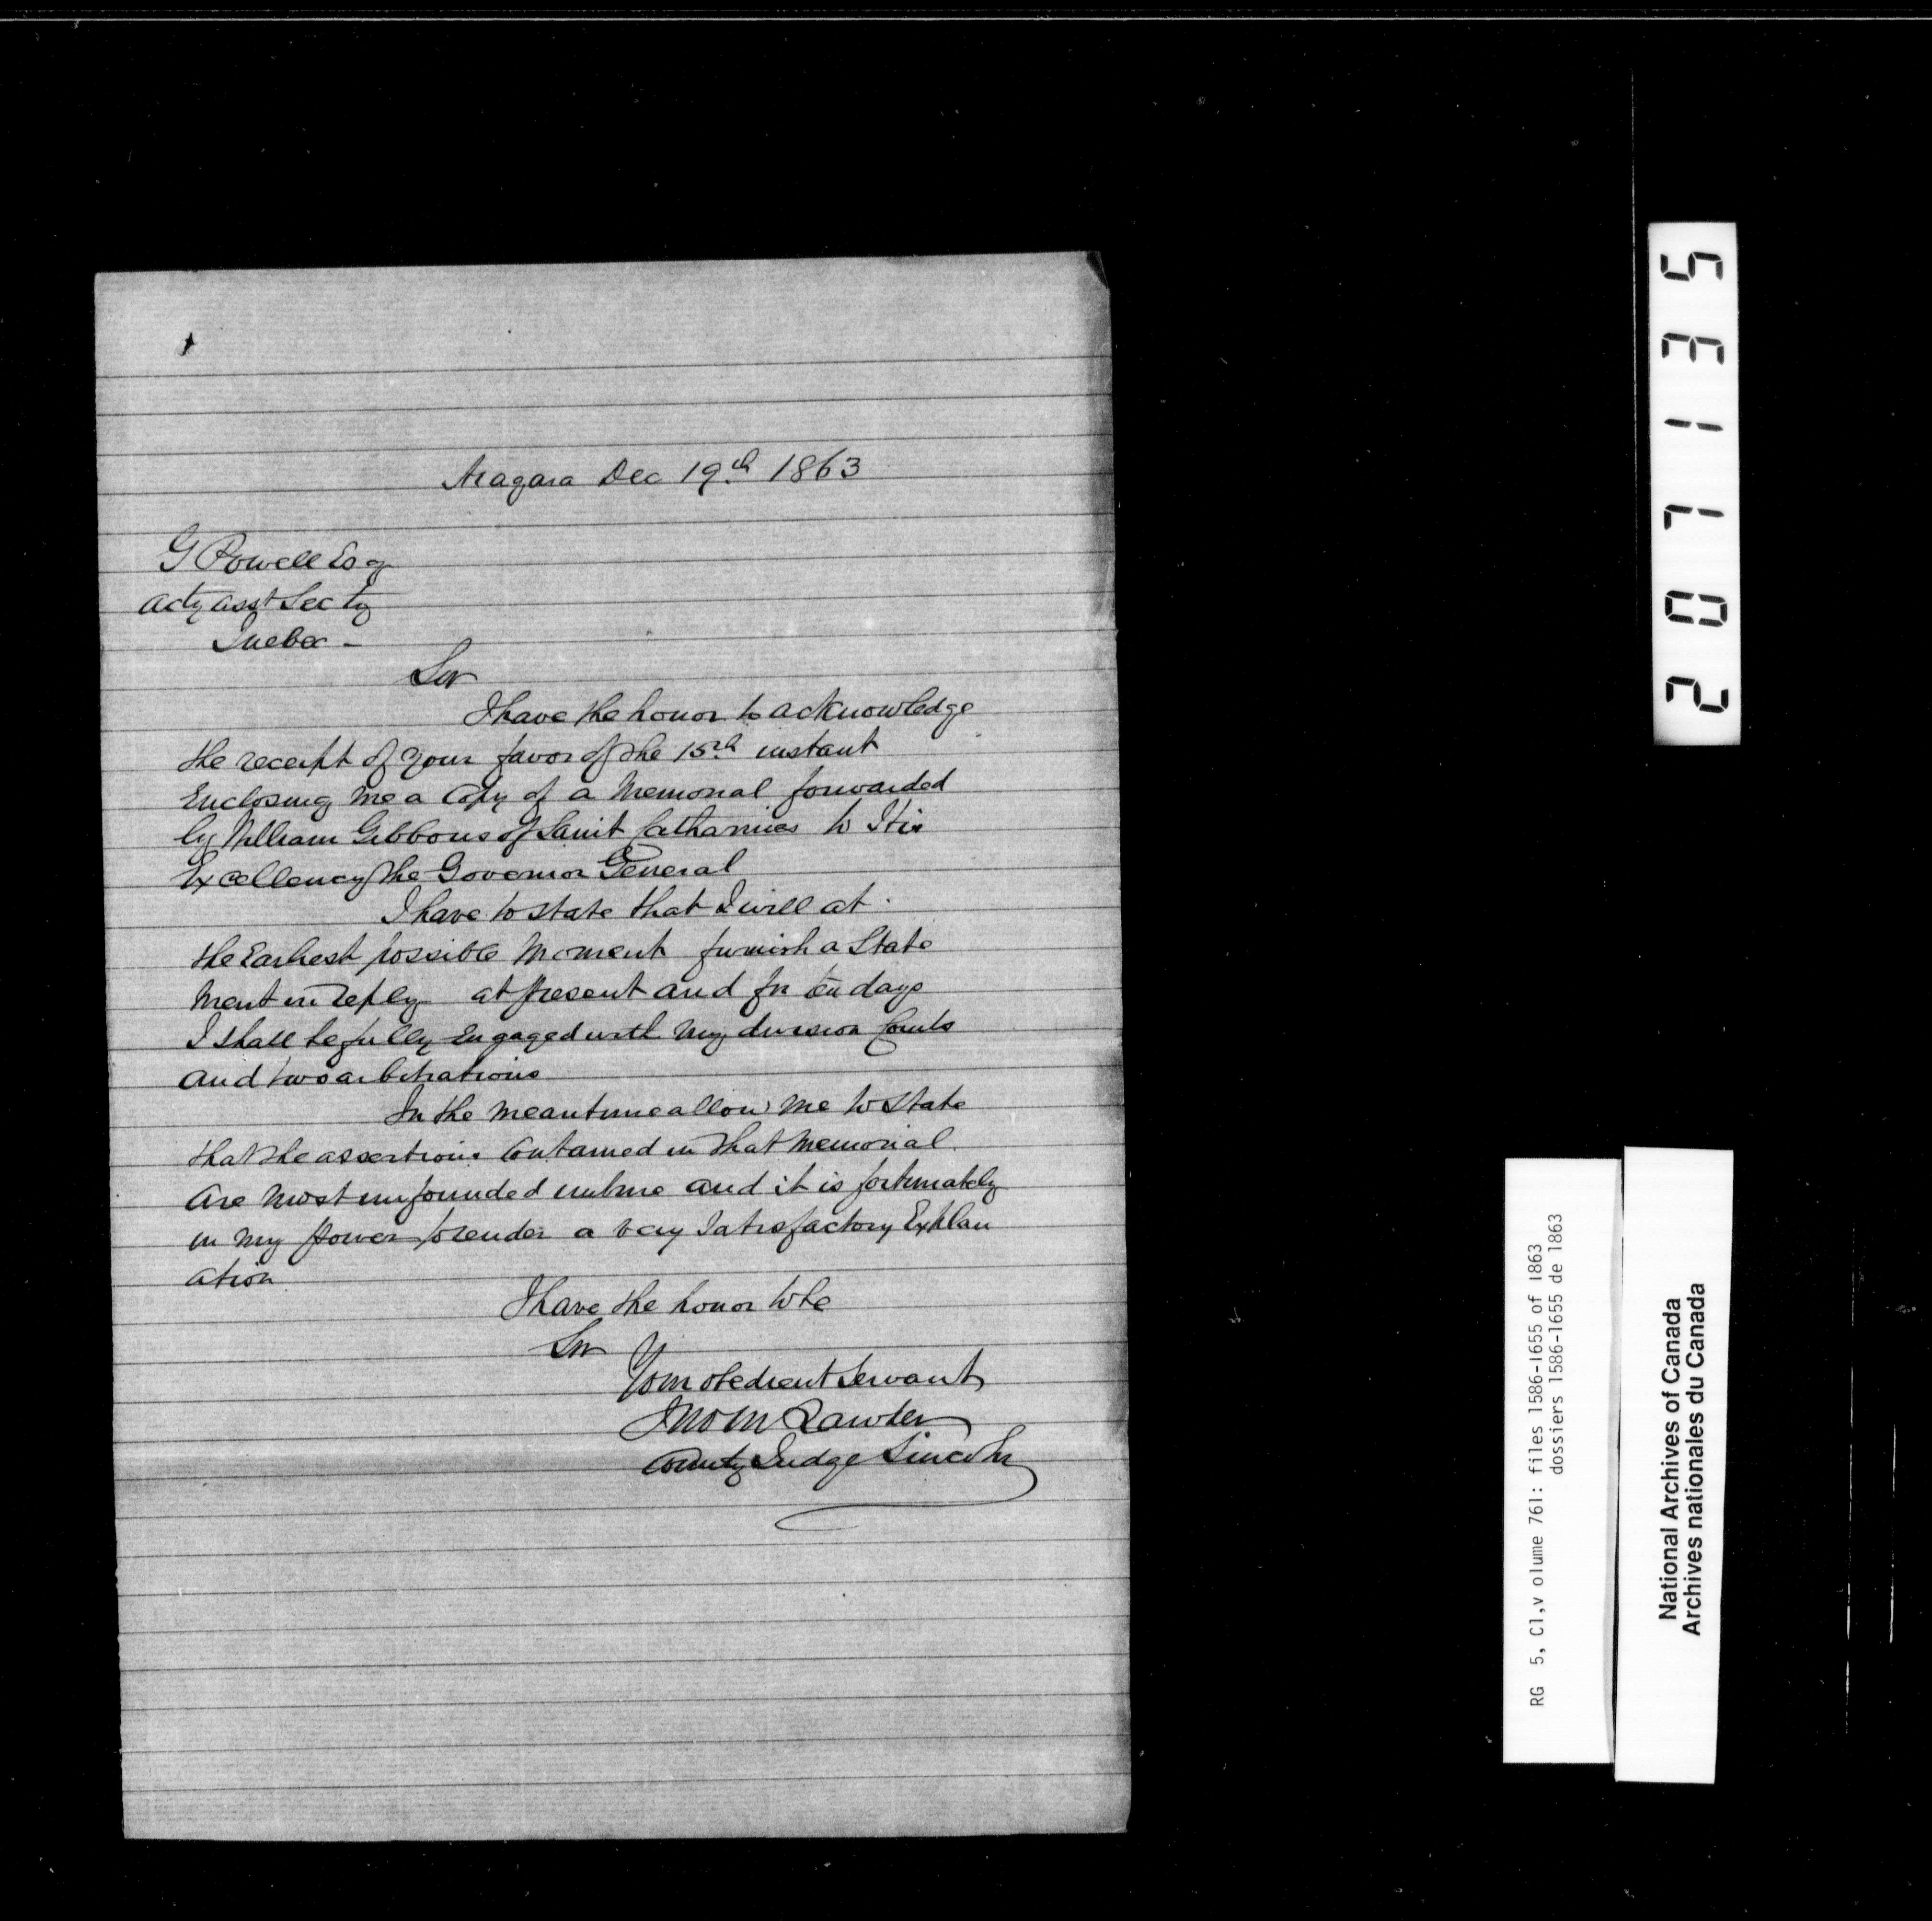 Niagara Dec 19th 1863
G Powell Esq
acty asst Secty
Quebec -
Sir
I have the honor to acknowledge
the receipt of your favor of the 15th instant
Enclosing me a Copy of a Memorial forwarded
by William Gibbons of Saint Catharines to His
Excellency the Governor General
I have to state that I will at
the Earliest possible Moment furnish a State
Ment in reply at present and for ten days
I shall be fully Engaged with my division Courts
and two arbitrations
In the meantime allow me to state
that the assertions Contained in that Memorial
are most unfounded untrue and it is fortunately
in my power to render a very Satisfactory Explan
ation
I have the honor to be
Sir
Your obedient Servant
Jno M Lawder
County Judge Lincoln
207135
RG 5, C1,v olume 761: files 1586-1655 of 1863
dossiers 1586-1655 de 1863
National Archives of Canada
Archives nationales du Canada